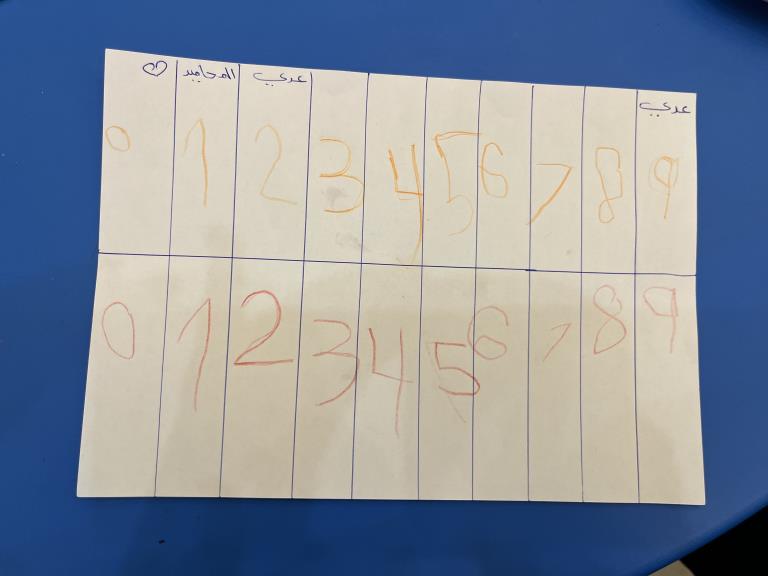 عدي
عدي المحاميد
0 1 2 3 4 5 6 7 8 9
0 1 2 3 4 5 6 7 8 9